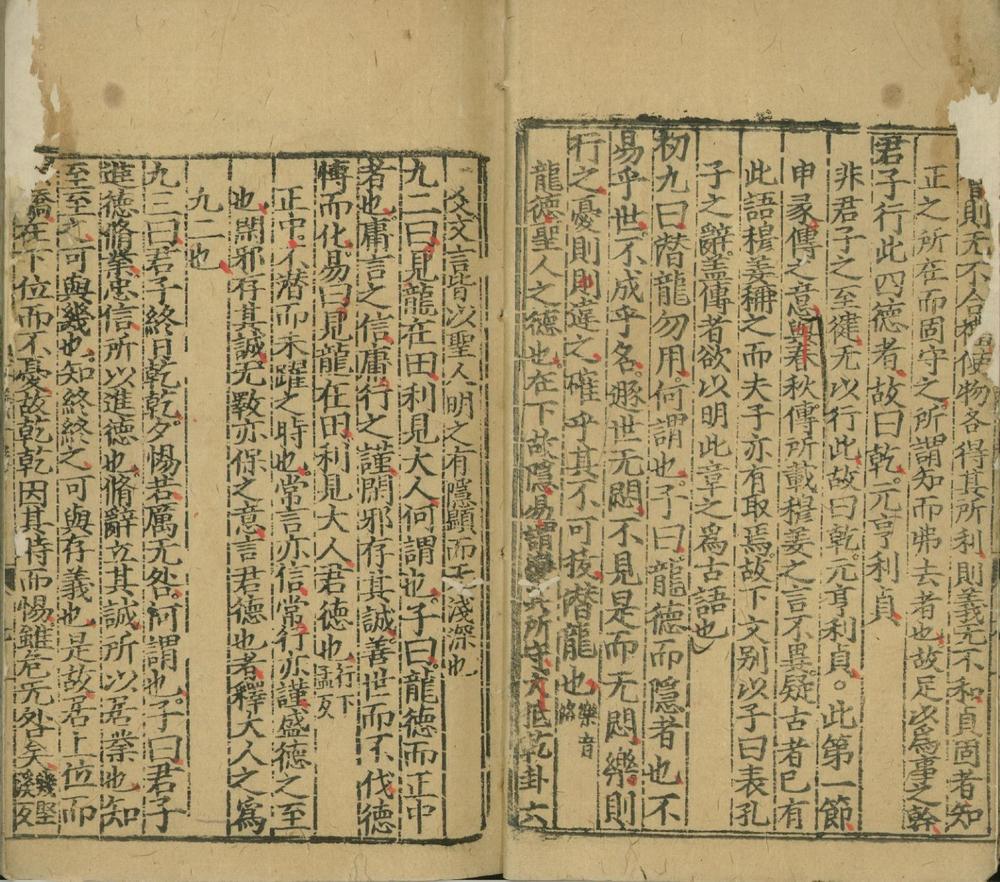 則无不合禮使物各得其所利則義无不和貞固者知
正之所在而固守之所謂知而弗去者也故足以爲事之幹
君子行此四德者故曰乾元亨利貞
非君子之至健无以行此故曰乾元亨利貞○此第一節
申彖傳之意與春秋傳所載穆姜之言不異疑古者已有
此語穆姜稱之而夫子亦有取焉故下文別以子曰表孔
子之辭蓋傳者欲以明此章之爲古語也
初九曰潛龍勿用何謂也子曰龍德而隱者也不
易乎世不成乎名遯世无悶不見是而无悶樂則
行之憂則違之確乎其不可拔潛龍也樂音洛
龍德聖人之德也在下故隱易謂變其所守大抵乾卦六
爻文言皆以聖人明之有隱顯而无淺深也
九二曰見龍在田利見大人何謂也子曰龍德而正中
者也庸言之信庸行之謹閑邪存其誠善世而不伐德
博而化易曰見龍在田利見大人君德也行下孟反
正中不潛而未躍之時也常言亦信常行亦謹盛德之至
也閑邪存其誠无斁亦保之意言君德也者釋大人之爲
九二也
九三曰君子終日乾乾夕惕若厲无咎何謂也子曰君子
進德脩業忠信所以進德也脩辭立其誠所以居業也知
至至之可與幾也知終終之可與存義也是故居上位而
不驕在下位而不憂故乾乾因其時而惕雖危无咎矣幾堅溪反